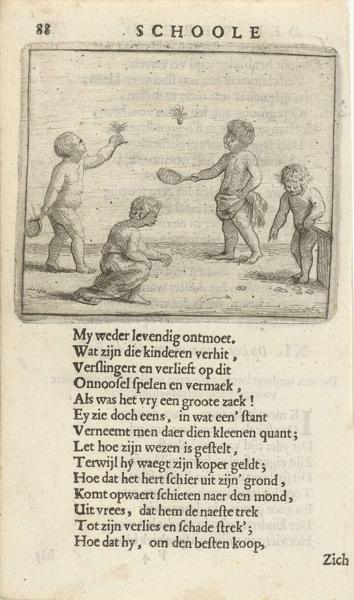 88 SCHOOLE
My weder levendig ontmoet.
Wat zijn die kinderen verhit,
Verslingert en verlieft op dit
Onnoosel spelen en vermaek,
Als was het vry een groote zaek!
Ey zie doch eens, in wat een' stant
Verneemt men daer dien kleenen quant;
Let hoe zijn wezen is gestelt,
Terwijl hy waegt zijn koper geldt;
Hoe dat het hert schier uit zijn' grond,
Komt opwaert schieten naer den mond,
Uit vrees, dat hem de naeste trek
Tot zijn verlies en schade strek';
Hoe dat hy, om den besten koop,
Zich